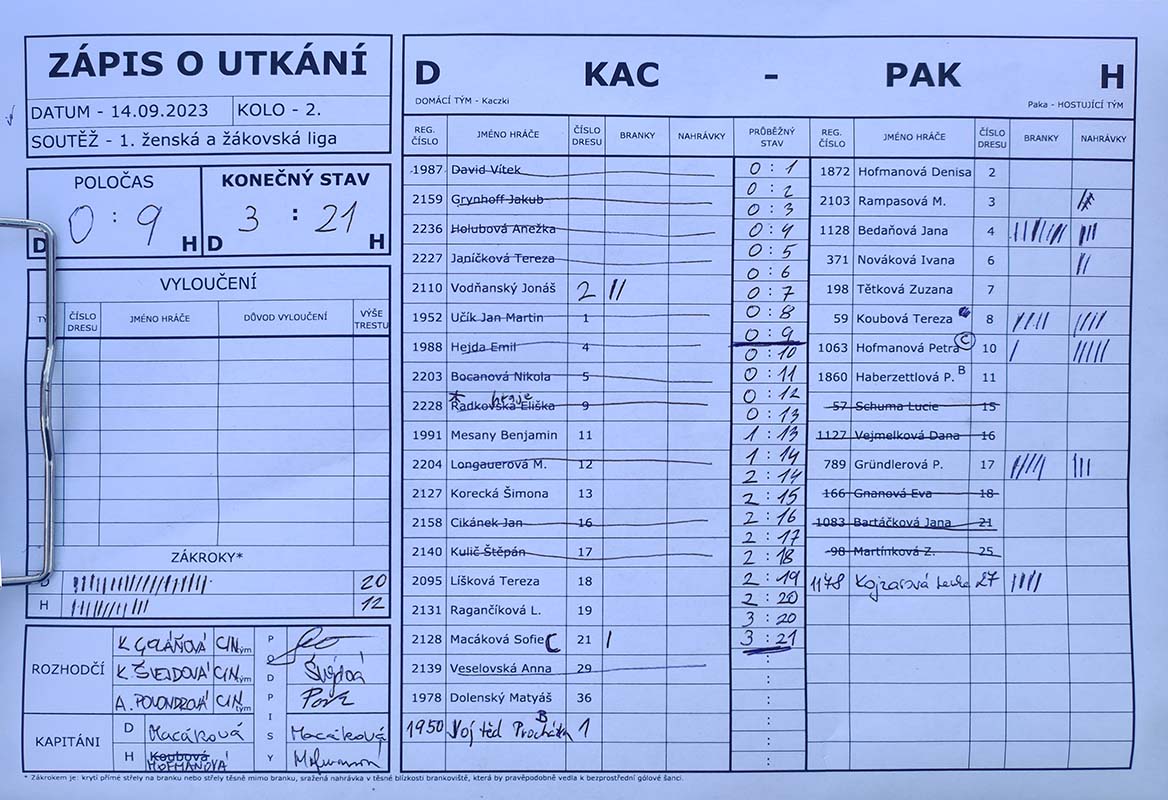 ZÁPIS O UTKÁNÍ
DATUM - 14.09.2023 KOLO - 2.
SOUTĚŽ - 1. ženská a žákovská liga
POLOČAS KONEČNÝ STAV
0 : 9 3 : 21
D H D H
VYLOUČENÍ
ČÍSLO DRESU JMÉNO HRÁČE DŮVOD VYLOUČENÍ VÝŠE TRESTU
ZÁKROKY*
D 20
H 12
ROZHODČÍ
K. GOLÁŇOVÁ CIN tým
K. ŠVEJDOVÁ CIN tým
A. POLONDROVÁ CIN tým
PODPISY
Švejdová
KAPITÁNI
D Macáková Macáková
H Koubová HOFMANOVÁ
D KAC - PAK H
DOMÁCÍ TÝM - Kaczki Paka - HOSTUJÍCÍ TÝM
REG. ČÍSLO JMÉNO HRÁČE ČÍSLO DRESU BRANKY NAHRÁVKY PRŮBĚŽNÝ STAV REG. ČÍSLO JMÉNO HRÁČE ČÍSLO DRESU BRANKY NAHRÁVKY
1987 David Vítek
2159 Grynhoff Jakub
2236 Holubová Anežka
2227 Janíčková Tereza
2110 Vodňanský Jonáš 2
1952 Učík Jan Martin 1
1988 Hejda Emil 4
2203 Bocanová Nikola 5
2228 Radkovská Eliška 9
hraje
1991 Mesany Benjamin 11
2204 Longauerová M. 12
2127 Korecká Šimona 13
2158 Cikánek Jan 16
2140 Kulič Štěpán 17
2095 Líšková Tereza 18
2131 Ragančíková L. 19
2128 Macáková Sofie C 21
2139 Veselovská Anna 29
1978 Dolenský Matyáš 36
1950 Vojtěd Procházka B 1
0 : 1
0 : 2
0 : 3
0 : 4
0 : 5
0 : 6
0 : 7
0 : 8
0 : 9
0 : 10
0 : 11
0 : 12
0 : 13
1 : 13
1 : 14
2 : 14
2 : 15
2 : 16
2 : 17
2 : 18
2 : 19
2 : 20
3 : 20
3 : 21
1872 Hofmanová Denisa 2
2103 Rampasová M. 3
1128 Bedaňová Jana 4
371 Nováková Ivana 6
198 Tětková Zuzana 7
59 Koubová Tereza 8
1063 Hofmanová Petra C 10
1860 Haberzettlová P. B 11
57 Schuma Lucie 15
1127 Vejmelková Dana 16
789 Gründlerová P. 17
166 Gnanová Eva 18
1083 Bartáčková Jana 21
98 Martínková Z. 25
1178 Kojzarová 27
* Zákrokem je: krytí přímé střely na branku nebo střely těsně mimo branku, sražená nahrávka v těsné blízkosti brankoviště, která by pravěpodobně vedla k bezprostřední gólové šanci.